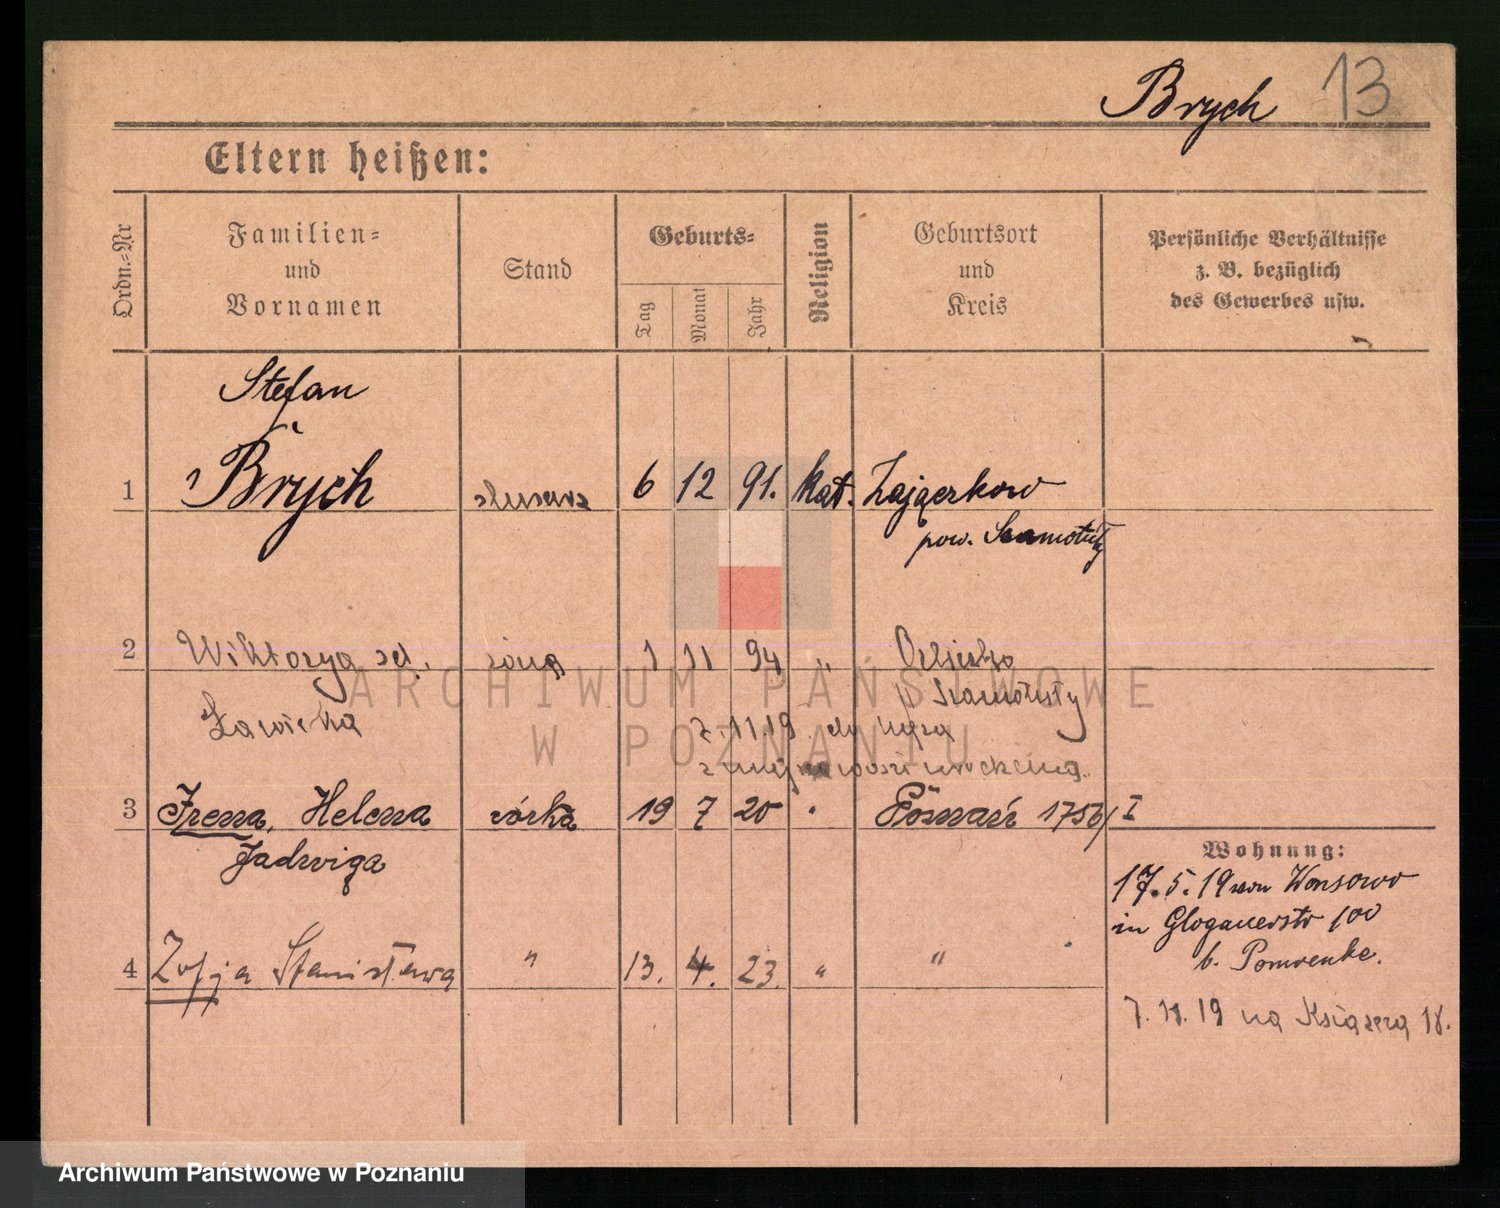 Brych 13
Eltern heißen:
Ordn.-Nr
Familien-
und
Vornamen
Stand
Geburts-
Tag
Monat
Jahr
Religion
Geburtsort
und
Kreis
Persönliche Verhältnisse
z. B. bezüglich
des Gewerbes usw.
Stefan
1 Brych 6 12 91. kat.
pow. Szamotuły
2 Wiktorya żona 1 11 94 "
Szamotuły
Ławicka 2.11.19. do męża
3 Irena, Helena córka 19 7 20 Poznań 1756/I
Jadwiga
Wohnung:
17.5.19 von Wonsowo
in Glogauerstr 100
b. Pomrenke.
4 Zofja Stanisława " 13. 4. 23. " "
7.11.19 na Książęca 18.
ARCHIWUM PAŃSTWOWE
W POZNANIU
Archiwum Państwowe w Poznaniu